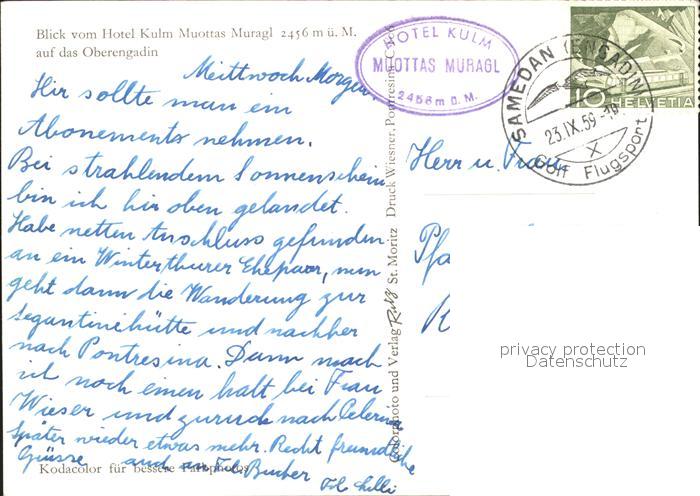 Blick vom Hotel Kulm Muottas Muragl 2456 m ü. M.
auf das Oberengadin
Meittwoch Morgen.
Hir sollte man ein
Abonements nehmen.
Bei strahlendem Sonnenschein
bin ich hir oben gelandet.
Habe netten Anschluss gefunden
an ein Winterthurer Ehepaar, nun
geht dann die Wanderung zur
Segantinehütte und nachher
nach Pontresina. Dann mach
ich noch einen halt bei Frau
Wieser und zurück nach Celerina
Später wieder etwas mehr. Recht freundliche
Grüsse auch an Frl. Bucher
Kodacolor für bessere Farbphotos
Colorphoto und Verlag St. Moritz Druck Wiesner, Pontresina
HOTEL KULM
MUOTTAS MURAGL
2456 m ü. M.
SAMEDAN (ENGADIN)
23.IX.59
X
Golf Flugsport
10 HELVETIA
Herr u. Frau
Pfa
K
privacy protection
Datenschutz